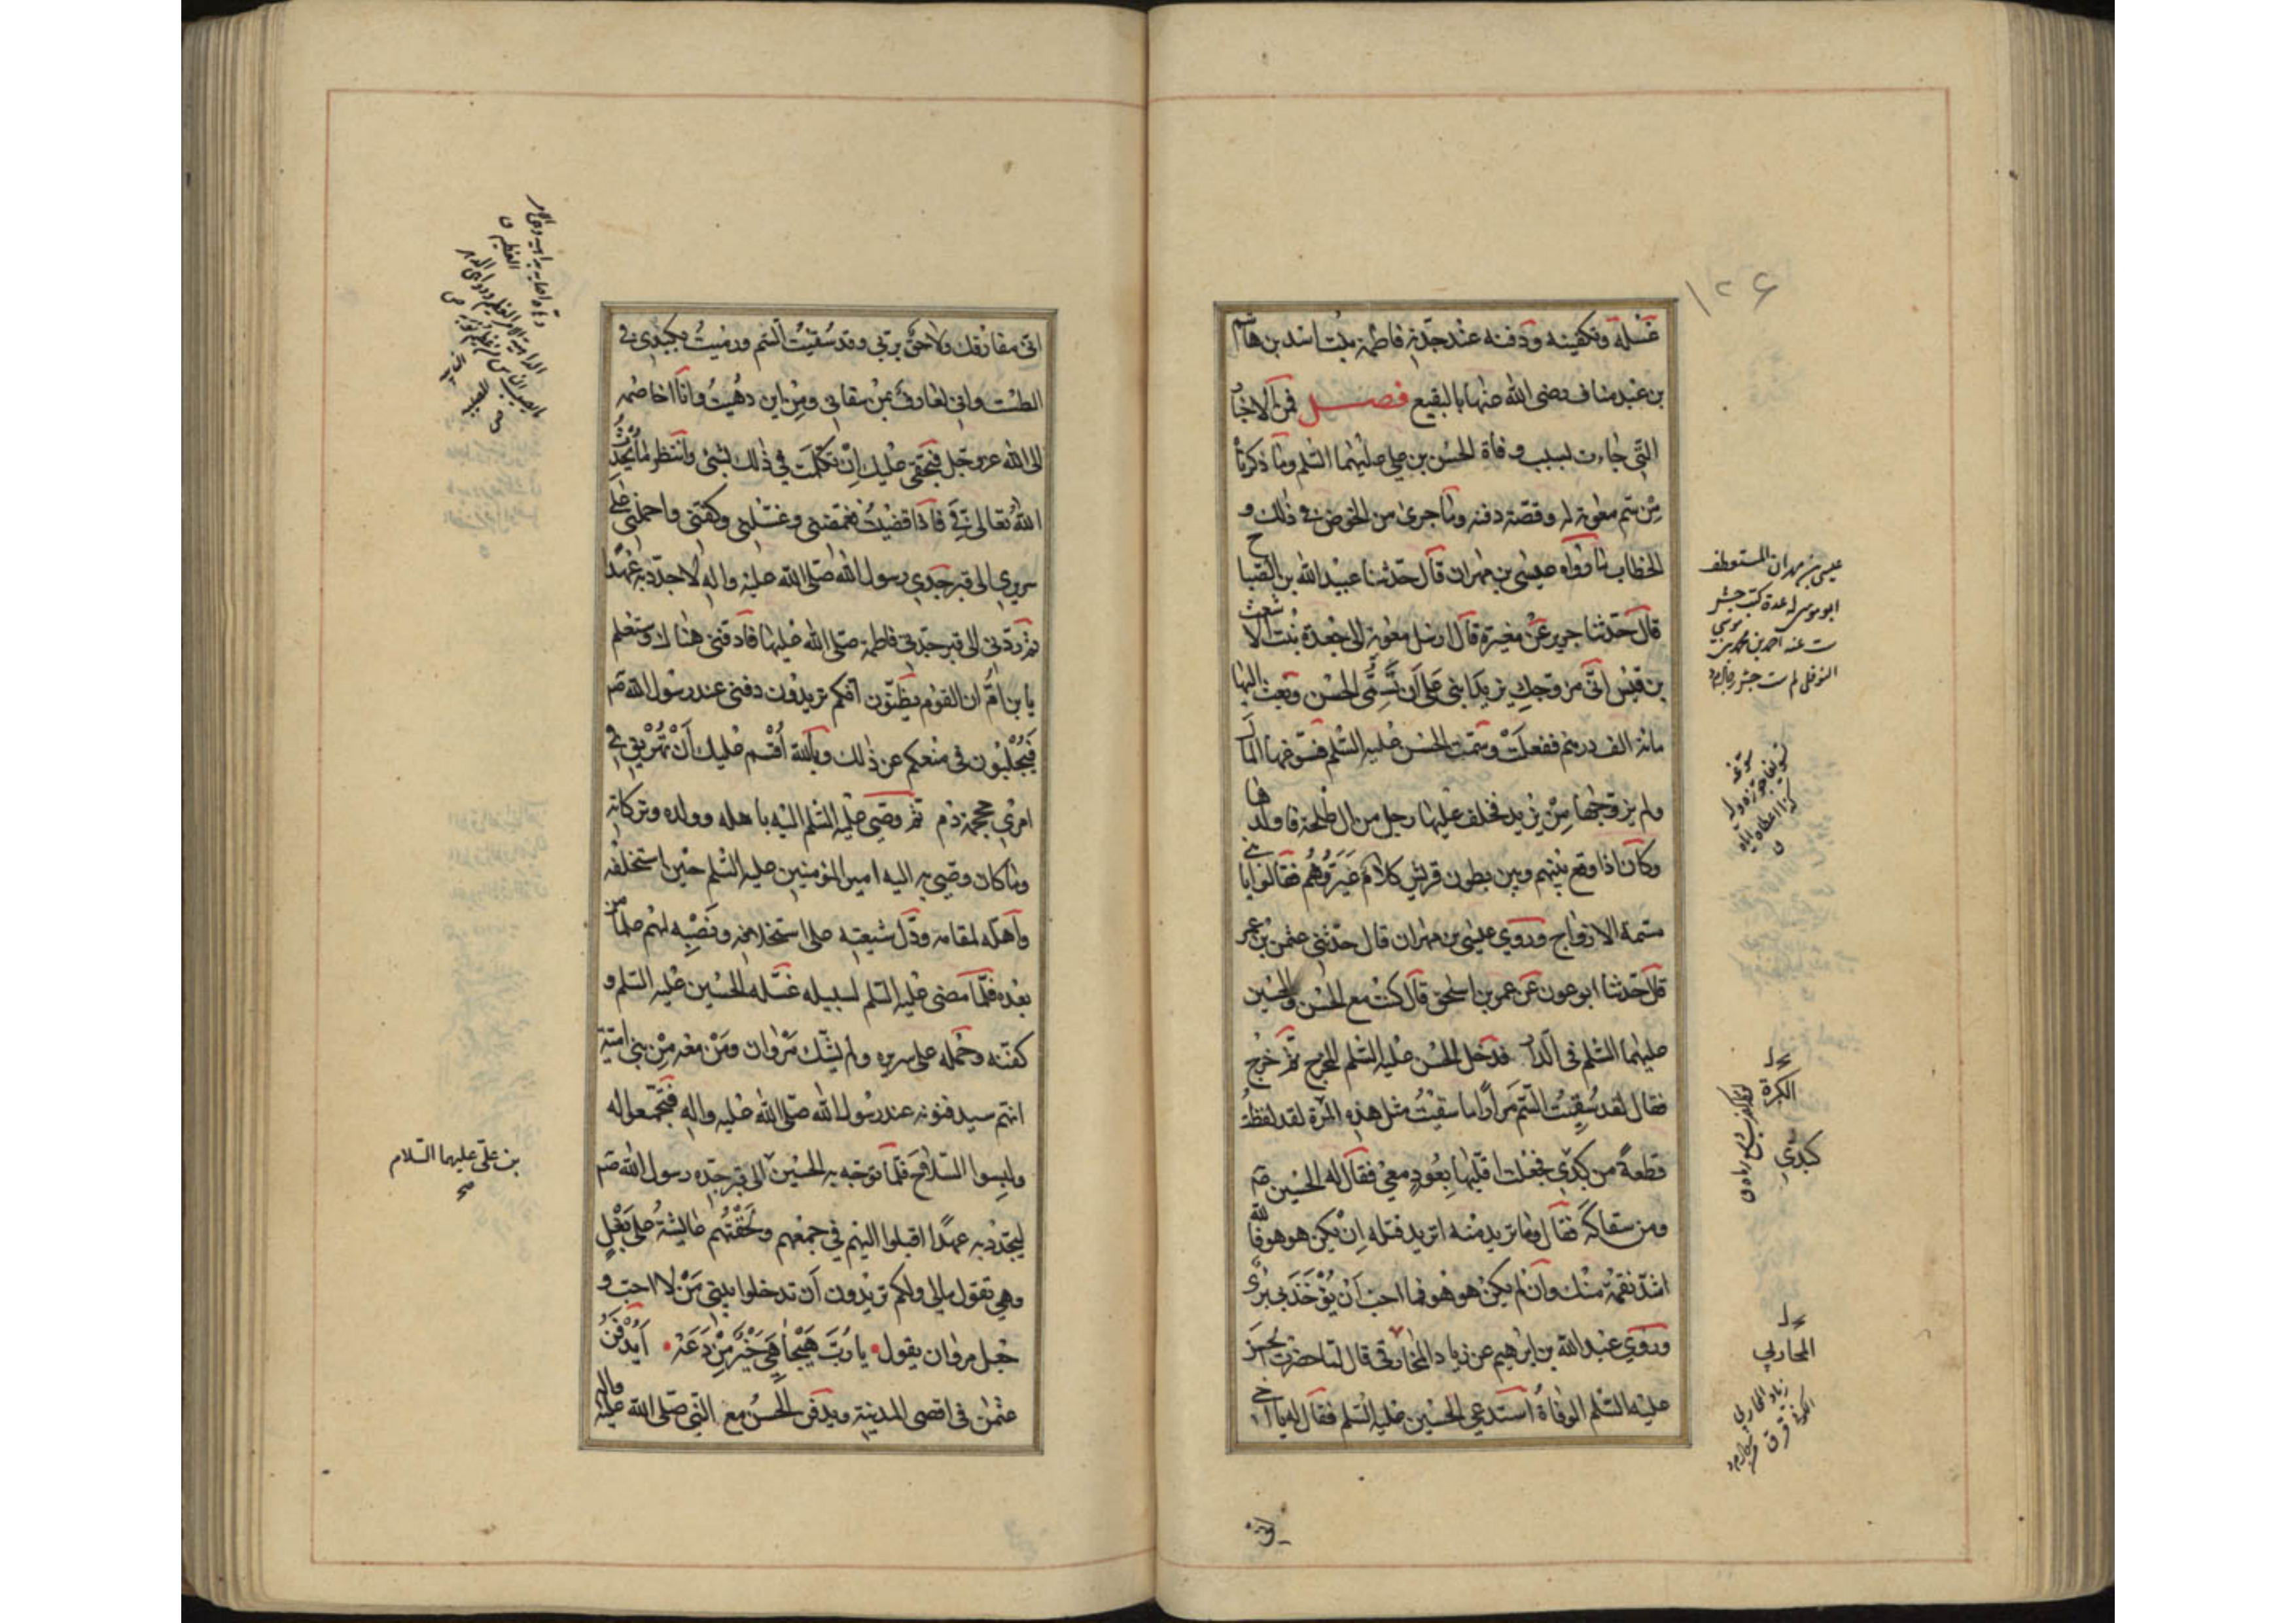 ١٢۶
غسله وتكفينه ودفنه عند جدّته فاطمة بنت اسد بن هاشم
بن عبد مناف رضى الله عنها بالبقيع فصل فمن الاخبار
التّى جاءت بسبب وفاة الحسن بن على عليهما السّلم وما ذكرناه
من سمّ معوية له وقصّة دفنه وما جرى من الخوض فى ذلك و
الخطاب ما رواه عيسى بن مهران قال حدّثنا عبيد الله بن الصّباح
قال حدّثنا جرير عن مغيرة قال ارسل معوية الى جعدة بنت الاشعث
بن قيس انّى مزوّجك يزيد ابنى على أن تسمّى الحسن وبعث اليها
مائة الف درهم ففعلت وسمّت الحسن عليه السّلم فسوّغها المال
ولم يزوّجها من يزيد فخلف عليها رجل من ال طلحة فاولدها
وكان اذا وقع بينهم وبين بطون قريش كلام عيّروهم فقالوا يا بنى
مسمّة الازواج وروى عيسى بن مهران قال حدّثنى عثمن بن عمر
قال حدّثنا ابو عون عن عمر بن اسحق قال كنت مع الحسن والحسين
عليهما السّلم فى الدّار فدخل الحسن عليه السّلم المخرج ثمّ خرج
فقال لقد سقيت السّمّ مرارًا ما سقيت مثل هذه المرّة لقد لفظت
قطعةً من كبدى فجعلت اقلّبها بعودٍ معى فقال له الحسين ع
ومن سقاكه فقال وما تريد منه اتريد قتله إن يكن هو هو فالله
اشدّ نقمة منك وان لم يكن هو هو فما احبّ أن يؤخذ بى برىّ
وروى عبد الله بن ابراهيم عن زياد المخارقى قال لمّا حضرت الحسن
عليه السّلم الوفاة استدعى الحسين عليه السّلم فقال له يا اخى
عيسى بن مهران المستعطف
ابو موسى له عدة كتب جش
المحاربي
كبدي
انّى مفارقك ولاحق بربّى وقد سقيت السّمّ ورميت بكبدى فى
الطّست وانى لعارف بمن سقانى ومن اين دهيت وانا اخاصمه
الى الله عزوجل فبحقّى عليك إن تكلّمت فى ذلك بشئ وانتظر ما يحدث
الله تعالى فيّ فاذا قضيت فغمّضنى وغسّلنى وكفّنى واحملنى على
سريرى الى قبر جدى رسول الله صلّى الله عليه واله لاجدّد به عهدًا
ثم ردّنى الى قبر جدّتى فاطمة صلّى الله عليها فادفنّى هناك وستعلم
يا بن امّ ان القوم يظنّون انكم تريدون دفنى عند رسول الله ص
فيجلبون فى منعكم عن ذلك وبالله أقسم عليك أن تهريق فى
امرى محجمة دم ثمّ وصّى عليه السّلم اليه باهله وولده وتركاته
وما كان وصّى به اليه امير المؤمنين عليه السّلم حين استخلفه
واهّله لمقامه ودلّ شيعته على استخلافه ونصبه لهم علما من
بعده فلمّا مضى عليه السّلم لسبيله غسّله الحسين عليه السّلم و
كفّنه وحمله على سريره ولم يشّك مروان ومن معه من بنى اميّة
انهم سيدفنونه عند رسول الله صلّى الله عليه واله فتجمعوا له
ولبسوا السّلاح فلمّا توجّه به الحسين الى قبر جدّه رسول الله ص
ليجدّد به عهدًا اقبلوا اليهم فى جمعهم ولحقتهم عايشة على بغل
وهى تقول مالى ولكم تريدون أن تدخلوا بيتى من لا احبّ و
جعل مروان يقول يا ربّ هيجا هى خير من دعة أيدفن
عثمن فى اقصى المدينة ويدفن الحسن مع النّبىّ صلّى الله عليه واله
بن على عليهما السلام
صح